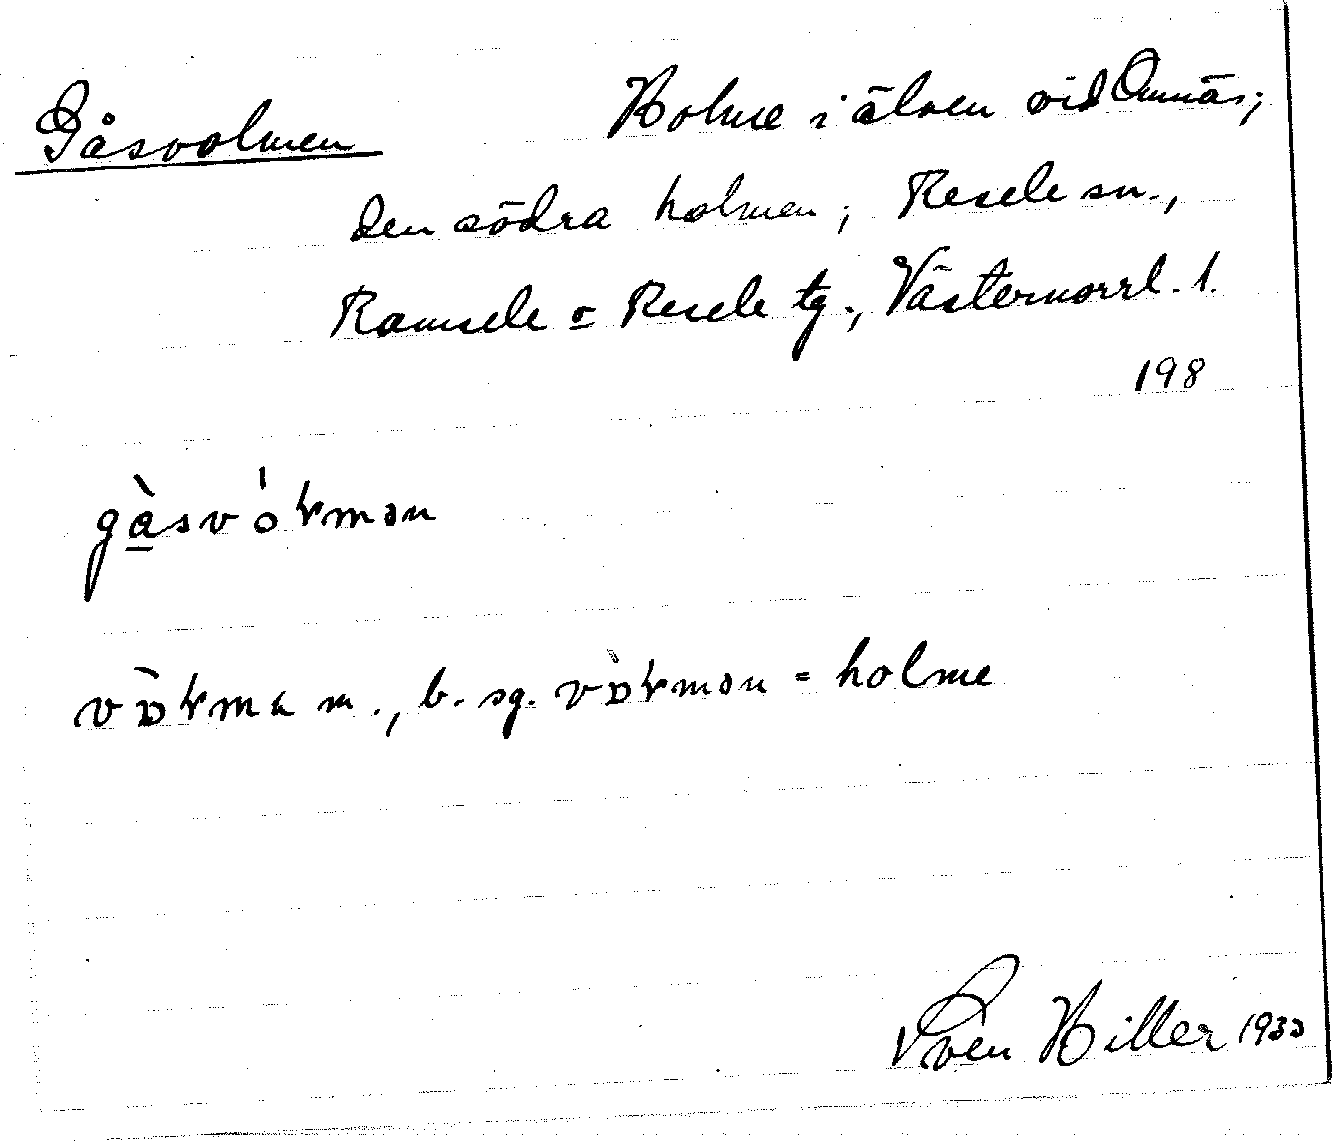 Gåsvolmen Holme i älven vid Omnäs;
den södra holmen; Resele sn.,
Ramsele o Resele tg., Västernorrl. l.
198
gàsvóɽmən
vòɽma m., b. sg. vòɽmən = holme
Sven Hiller 1933